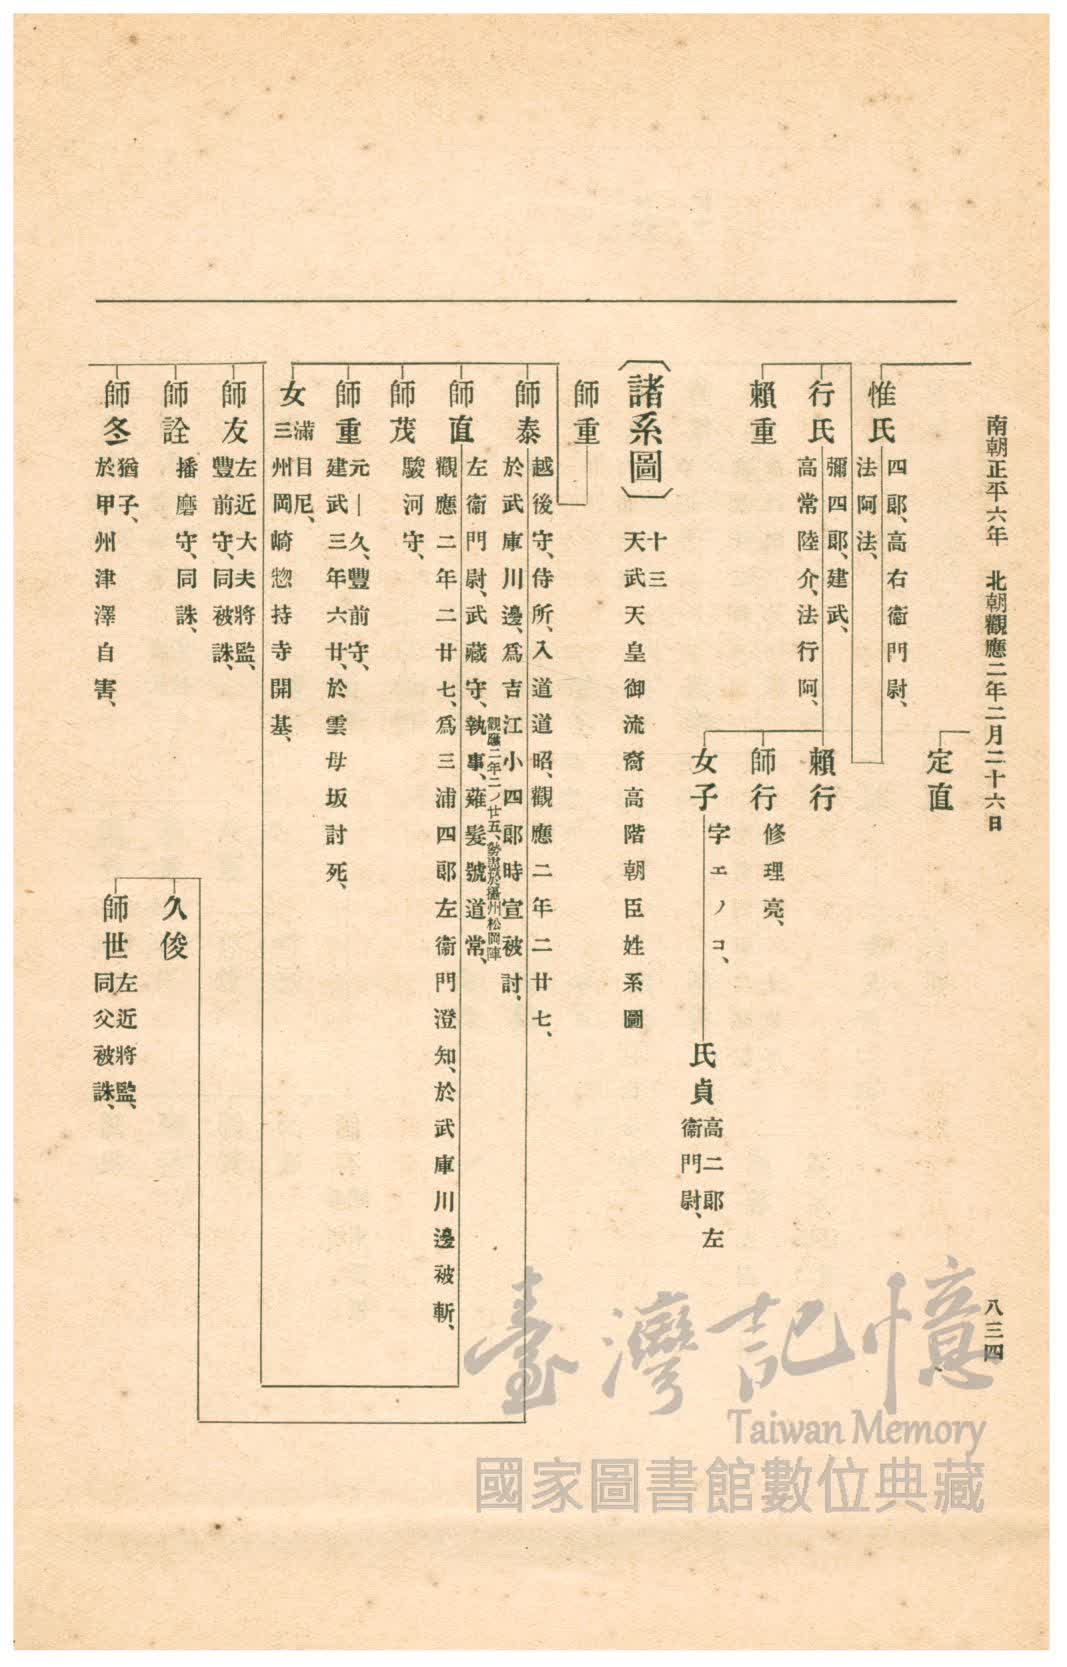 南朝正平六年　北朝觀應二年二月二十六日
八三四
定直
惟氏
四郎、高右衞門尉、
法阿法、
行氏
彌四郎、建武、
高常陸介、法行阿、
賴重
賴行
師行
修理亮、
女子
字エノコ、
氏貞
高二郎左
衞門尉、
〔諸系圖〕
十三
天武天皇御流裔高階朝臣姓系圖
師重
師泰
越後守、侍所、入道道昭、觀應二年二廿七、
於武庫川邊、爲吉江小四郎時宣被討、
師直
觀應二年二ノ廿五、於攝州松岡陣
左衞門尉、武藏守、執事、薙髮號道常、
觀應二年二廿七、爲三浦四郎左衞門澄知、於武庫川邊被斬、
師茂
駿河守、
師重
元｜久、豐前守、
建武三年六廿、於雲母坂討死、
女
滿目尼、
三州岡崎惣持寺開基、
師友
左近大夫將監、
豐前守、同被誅、
師詮
播磨守、同誅、
師冬
猶子、
於甲州津澤自害、
久俊
師世
左近將監、
同父被誅、
臺灣記憶
Taiwan Memory
國家圖書館數位典藏